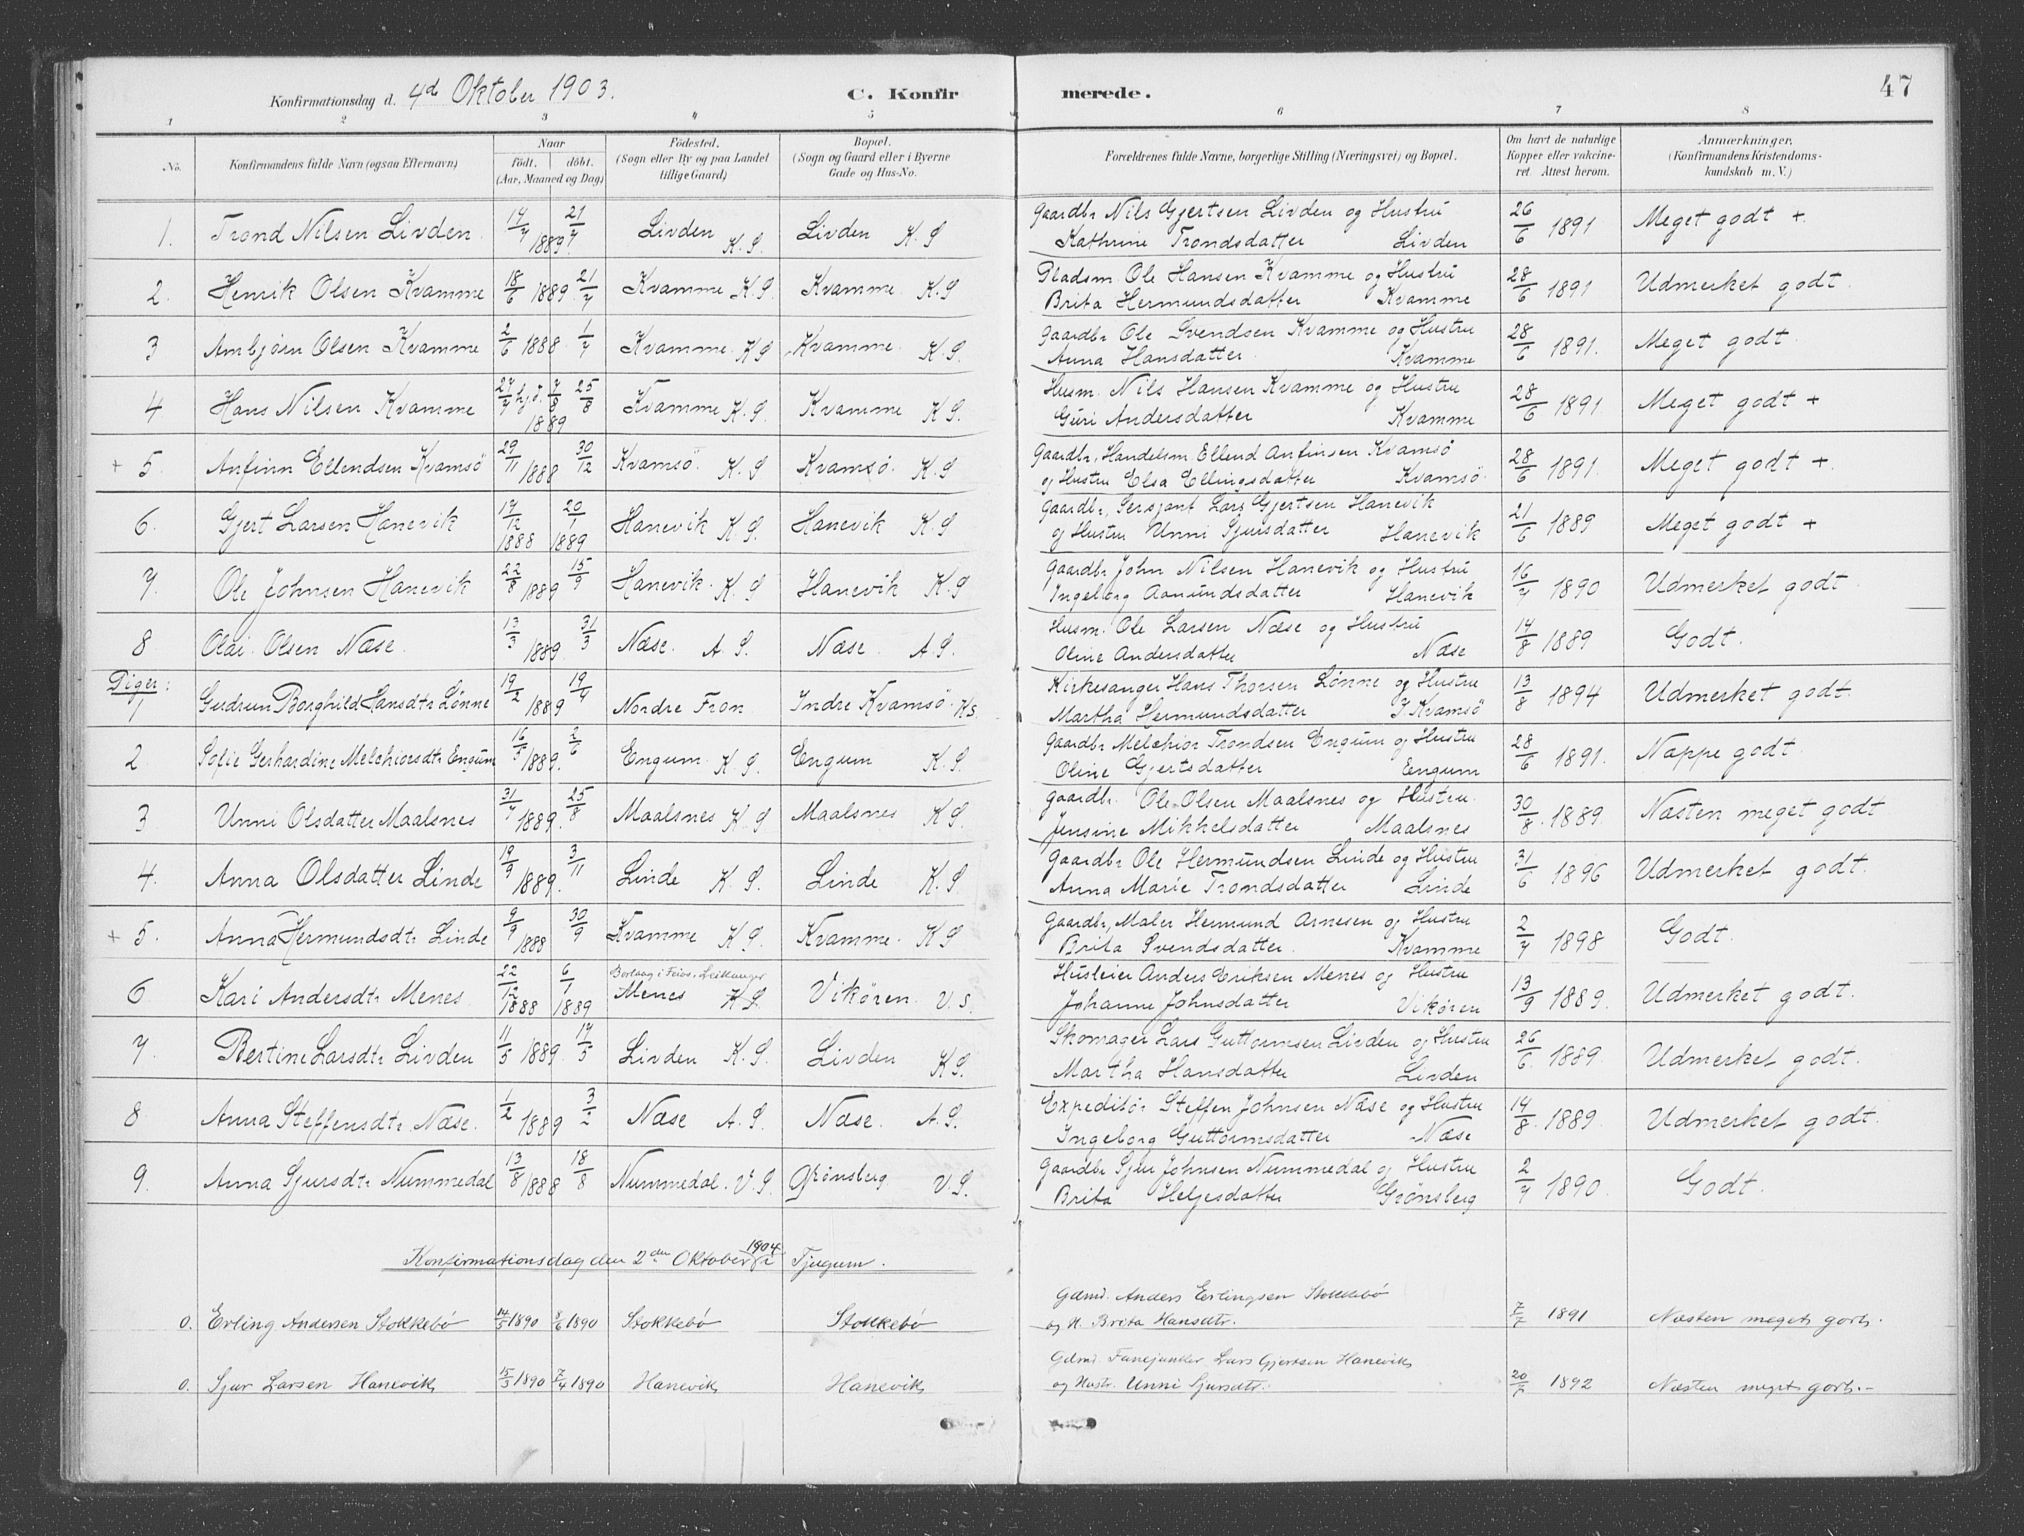 Konfirmationsdag d. 4d Oktober 1903. C. Konfir merede. 47
1 2 3 4 5 6 7 8
No. Konfirmandens fulde Navn (ogsaa Efternavn) Naar født. døbt. (Aar, Maaned og Dag) Fødested. (Sogn eller By og paa Landet tillige Gaard) Bopæl. (Sogn og Gaard eller i Byerne Gade og Hus-No. Forældrenes fulde Navne, borgerlige Stilling (Næringsvei) og Bopæl. Om havt de naturlige Kopper eller vakcineret. Attest herom. Anmærkninger. (Konfirmandens Kristendomskundskab m. V.)
1. Trond Nilsen Livden 17/7 1889 21/7 Livden K. S Livden K. S Gaardbr Nils Gjertsen Livden og Hustru
Kathrine Trondsdatter Livden 26/6 1891 Meget godt +
2. Henrik Olsen Kvamme 18/6 1889 21/7 Kvamme K. S. Kvamme. K. S Pladsm. Ole Hansen Kvamme og Hustru
Brita Hermundsdatter Kvamme 28/6 1891 Udmerket godt.
3 Ambjörn Olsen Kvamme 2/6 1888 1/7 Kvamme. K S Kvamme. K. S. Gaardbr Ole Svendsen Kvamme og Hustru
Anna Hansdatter. Kvamme 28/6 1891. Meget godt.
4 Hans Nilsen Kvamme 27/7 hjd. 7/8 1889 25/8 Kvamme K. S. Kvamme K S. Husm. Nils Hansen Kvamme og Hustru
Guri Andersdatter Kvamme 28/6 1891 Meget godt +
+ 5. Anfinn Ellendsen Kvamsö 29/11 1888 30/12 Kvamsö. K. S Kvamsö. K. S Gaardbr, Handelsm. Ellend Anfinsen Kvamsö
og Hustru Elsa Ellingsdatter Kvamsö. 28/6 1891. Meget godt +.
6. Gjert Larsen Hanevik 17/12 1888 20/1 1889 Hanevik K. S. Hanevik K. S Gaardbr, Sersjant Lars Gjertsen Hanevik
og Hustru Unni Sjursdatter Hanevik 21/6 1889 Meget godt +
7. Ole Johnsen Hanevik 22/8 1889 15/9 Hanevik. K. S Hanevik K. S Gaardbr John Nilsen Hanevik og Hustru
Ingeborg Aamundsdatter Hanevik 16/7 1890 Udmerket godt
8 Olai Olsen Næse. 13/3 1889. 31/3 Næse. A. S. Næse. A. S. Husm. Ole Larsen Næse og Hustru
Oline Andersdatter Næse 14/8 1889 Godt.
Piger:
1 Gudrun Borghild Hansdtr Lønne 19/2 1889 19/4 Nordre Fron Indre Kvamsö. K. S. Kirkesanger Hans Thorsen Lønne og Hustru
Martha Hermundsdatter I Kvamsö 13/8 1894 Udmerket godt.
2 Sofie Gerhardine Melchiorsdtr Engum 16/5 1889. 2/6 Engum. K. S Engum K. S. Gaardbr Melchior Trondsen Engum og Hustru
Oline Gjertsdatter Engum 28/6 1891. Nappe godt.
3 Unni Olsdatter Maalsnes 31/7 1889. 25/8 Maalsnes K. S Maalsnes K S. Gaardbr. Ole Olsen Maalsnes og Hustru.
Jensine Mikkelsdatter Maalsnes 30/8. 1889. Næsten meget godt
4. Anna Olsdatter Linde 19/9 1889. 3/11 Linde K. S. Linde K. S. Gaardbr Ole Hermundsen Linde og Hustru
Anna Marie Trondsdatter Linde 31/6 1896 Udmerket godt.
+ 5. Anna Hermundsdtr Linde 9/9 1888 30/9 Kvamme K S. Kvamme. K S Gaardbr, Maler Hermund Arnesen og Hustru
Brita Svendsdatter. Kvamme 2/7 1898 Godt.
6 Kari Andersdtr Menes 22/12 1888 6/1 1889 Borlaug i Feios, Leikanger
Menes K. S. Vikören. V. S. Husleier Anders Eriksen Menes og Hustru
Johanne Johnsdatter Vikören 13/9 1889. Udmerket godt.
7 Bertine Larsdtr Livden 11/5 1889. 17/5 Livden K. S. Livden K S. Skomager Lars Guttormsen Livden og Hustru
Martha Hansdatter Livden 26/6. 1889. Udmerket godt.
8 Anna Steffensdtr Næse. 1/2 1889 3/2 Næse A. S. Næse. A. S. Expeditör Steffen Johnsen Næse og Hustru
Ingeborg Guttormsdatter Næse 14/8. 1889. Udmerket godt.
9. Anna Sjursdtr Nummedal 13/8 1888 18/8 Nummedal. V. S. Grønsberg V. S. Gaardbr Sjur Johnsen Nummedal og Hustru
Brita Heljesdatter Grønsberg 2/7 1890. Godt.
Konfirmationsdag den 2den Oktober 1904 i Tjugum.
0. Erling Andersen Stokkebö 14/5 1890 8/6 1890 Stokkebö Stokkebö Gdmd. Anders Erlingsen Stokkebö
og H. Brita Hansdtr. 7/7 1891 Næsten meget godt.
0. Sjur Larsen Hanevik 15/3 1890 7/4 1890 Hanevik Hanevik Gdmd. Fanejunker Lars Gjertsen Hanevik
og Hustr. Unni Sjursdtr. 20/7 1892 Næsten meget godt.-